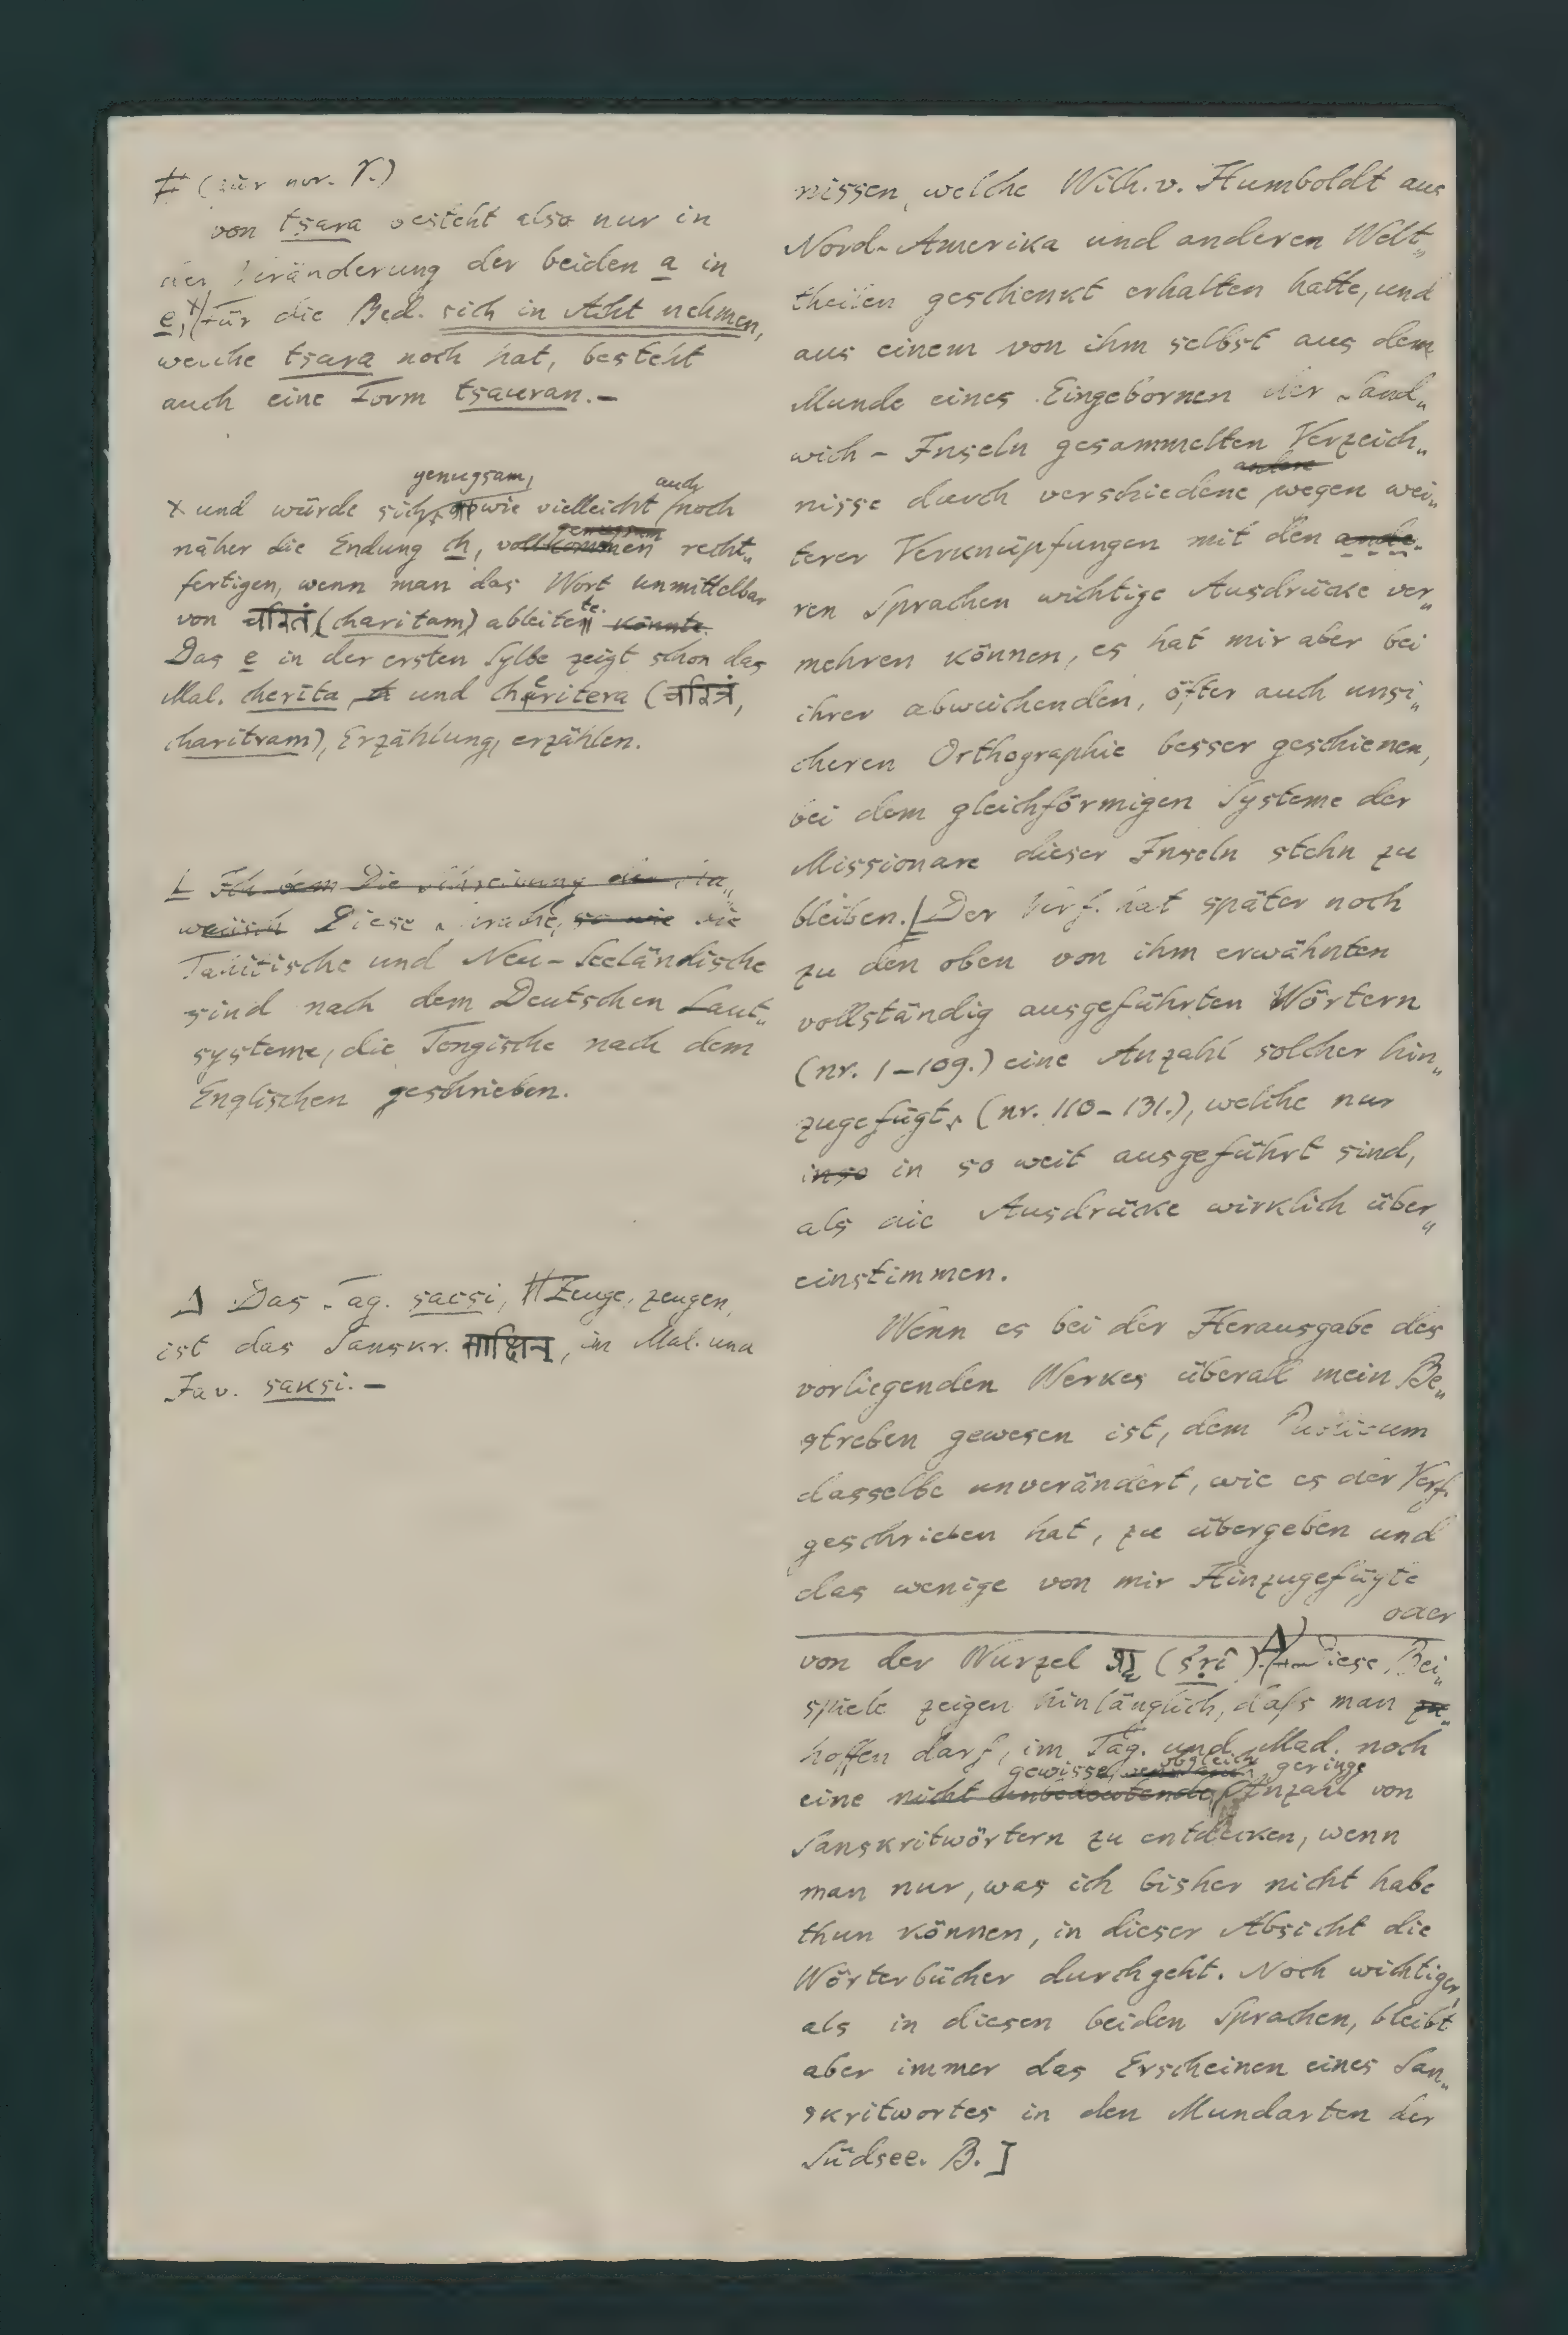 (zur nr. 7.)
von tsara besteht also nur in
der Veränderung der beiden a in
e, Für die Bed. sich in Acht nehmen,
welche tsara noch hat, besteht
auch eine Form tsauran.—
genugsam, auch
x und würde sich, wie vielleicht noch
genugsam
näher die Endung ch, vollkommen recht„
fertigen, wenn man das Wort unmittelbar
te.
von चरितं (charitam) ableiten könnte.
Das e in der ersten Sylbe zeigt schon das
Mal. cherita und cheritera (चरित्रं,
charitram), Erzählung, erzählen.
L Ich dem Die Schreibung der
Diese Sprache, so wie die
Tahitische und Neu-Seeländische
sind nach dem Deutschen Laut„
systeme, die Tongische nach dem
Englischen geschrieben.
Δ Das Tag. sacsi, Zeuge, zeugen,
ist das Sanskr. साक्षिन्, im Mal. und
Jav. saksi.—
nissen, welche Wilh. v. Humboldt aus
Nord-Amerika und anderen Welt„
theilen geschenkt erhalten hatte, und
aus einem von ihm selbst aus dem
Munde eines Eingebornen der Sand„
wich-Inseln gesammelten Verzeich„
andere
nisse durch verschiedene wegen wei„
terer Verknüpfungen mit den ande„
ren Sprachen wichtige Ausdrücke ver„
mehren können, es hat mir aber bei
ihrer abweichenden, öfter auch unsi„
cheren Orthographie besser geschienen,
bei dem gleichförmigen Systeme der
Missionare dieser Inseln stehn zu
bleiben. L Der Verf. hat später noch
zu den oben von ihm erwähnten
vollständig ausgeführten Wörtern
(nr. 1-109.) eine Anzahl solcher hin„
zugefügt, (nr. 110-131.), welche nur
inso in so weit ausgeführt sind,
als die Ausdrücke wirklich über„
einstimmen.
Wenn es bei der Herausgabe des
vorliegenden Werkes überall mein Be„
streben gewesen ist, dem Publicum
dasselbe unverändert, wie es der Verf.
geschrieben hat, zu übergeben und
das wenige von mir Hinzugefügte
oder
von der Wurzel (śrî). Δ Diese Bei„
spiele zeigen hinlänglich, daſs man zu
hoffen darf, im Tag. und Mad. noch
gewisse, obgleich geringe
eine nicht unbedeutende Anzahl von
Sanskritwörtern zu entdecken, wenn
man nur, was ich bisher nicht habe
thun können, in dieser Absicht die
Wörterbücher durchgeht. Noch wichtiger,
als in diesen beiden Sprachen, bleibt
aber immer das Erscheinen eines San„
skritwortes in den Mundarten der
Südsee. B.]